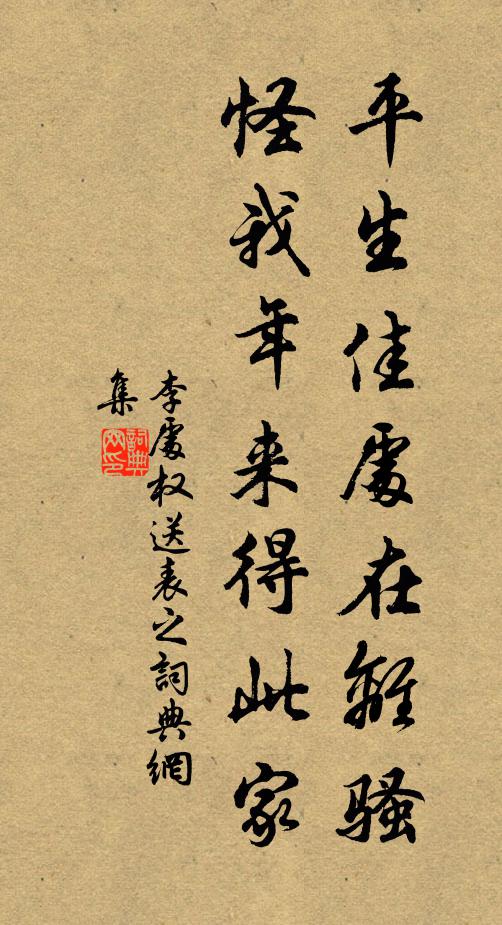 平生佳處在離騷
怪我年来得此家
李處权送表之詞典網
集
詞典网印